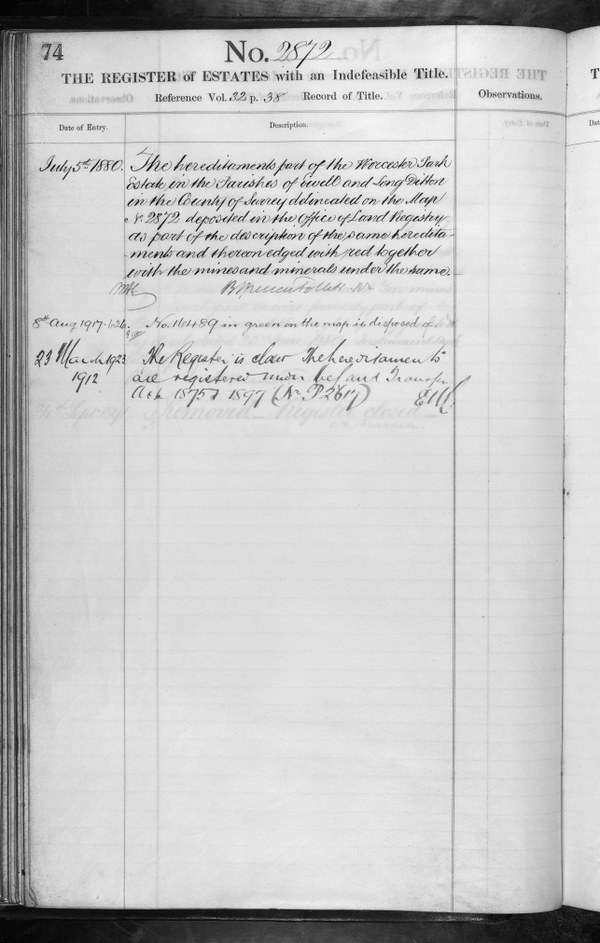 74
No. 2872
THE REGISTER of ESTATES with an Indefeasible Title.
Reference Vol. 32 p. 38 Record of Title.
Observations.
Date of Entry.
Description.
July 5th 1880.
The hereditaments part of the Worcester Park
Estate, in the Parishes of Ewell and Long Ditton
in the County of Surrey delineated on the Map
No 2872 deposited in the Office of Land Registry
as part of the description of the same heredita-
ments and thereon edged with red together
with the mines and minerals under the same.
8th Aug 1917
No. 161489 in green on the map is disposed of
23 March 1923
The Register is The hereditaments
1912
are registered under Land Transfer
Acts 1875 1897 (No P2617)